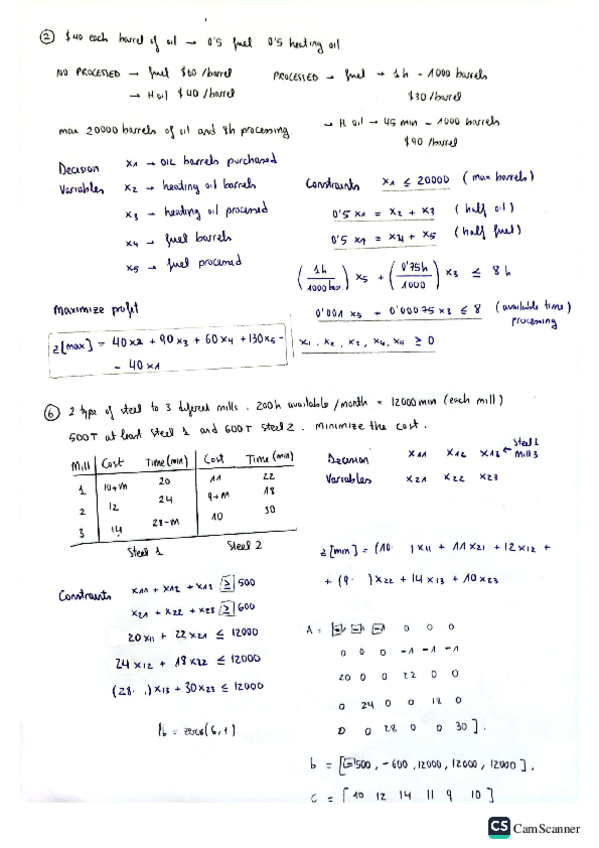 ② $40 each barrel of oil → 0'5 fuel 0'5 heating oil
NO PROCESSED → fuel $60/barrel
→ H oil $40/barrel
PROCESSED → fuel → 1h - 1000 barrels
$130/barrel
→ H oil → 45 min - 1000 barrels
$90/barrel
max 20000 barrels of oil and 8h processing
Decision Variables
x1 → OIL barrels purchased
x2 → heating oil barrels
x3 → heating oil processed
x4 → fuel barrels
x5 → fuel processed
Constraints x1 ≤ 20000 (max barrels)
0'5 x1 = x2 + x3 (half oil)
0'5 x1 = x4 + x5 (half fuel)
(1h/1000 bar) x5 + (0'75h/1000) x3 ≤ 8h
0'001 x5 + 0'00075 x3 ≤ 8 (available time) processing
x1, x2, x3, x4, x5 ≥ 0
Maximize profit
z[max] = 40x2 + 90x3 + 60x4 + 130x5 -
- 40x1
⑥ 2 type of steel to 3 diferent mills. 200h available/month = 12000 min (each mill)
500T at least steel 1 and 600T steel 2. Minimize the cost.
Mill Cost Time(min) Cost Time(min)
1 10+M 20 11 22
2 12 24 9+M 18
3 14 28-M 10 30
Steel 1 Steel 2
Decision Variables
x11 x12 x13 ← Steel 1 Mill 3
x21 x22 x23
z[min] = (10 )x11 + 11x21 + 12x12 +
+ (9 )x22 + 14x13 + 10x23
Constraints
x11 + x12 + x13 ≥ 500
x21 + x22 + x23 ≥ 600
20x11 + 22x21 ≤ 12000
24x12 + 18x22 ≤ 12000
(28 )x13 + 30x23 ≤ 12000
lb = zeros(6,1)
A = [-1 -1 -1 0 0 0
0 0 0 -1 -1 -1
20 0 0 22 0 0
0 24 0 0 18 0
0 0 28 0 0 30].
b = [-500, -600, 12000, 12000, 12000].
c = [10 12 14 11 9 10]
CS CamScanner